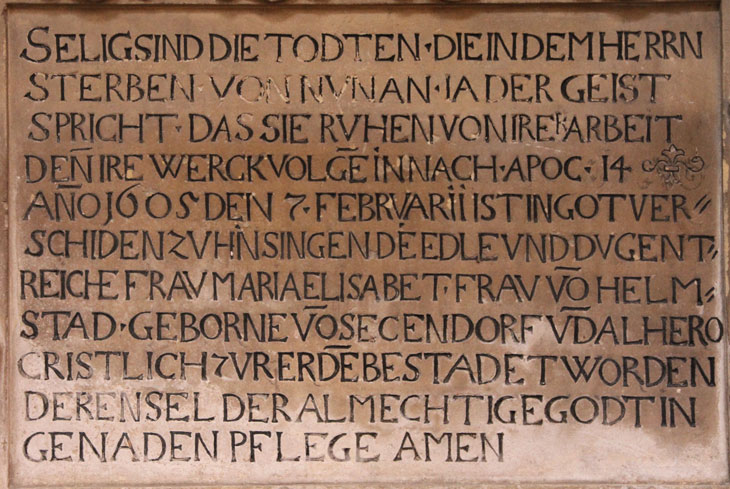 SELIG SIND DIE TODTEN · DIE IN DEM HERRN
STERBEN VON NVN AN · IA DER GEIST
SPRICHT · DAS SIE RVHEN VON IRER ARBEIT
DEN̄ IRE WERCK VOLGĒ IN NACH · APOC · 14
AN̄O 1605 DEN 7 · FEBRVARII IST IN GOT VER〃
SCHIDEN ZV HINSINGEN DĒ EDLE VND DVGENT〃
REICHE FRAV MARIA ELISABET · FRAV VŌ HELM〃
STAD · GEBORNE VŌ SECENDORF VN̄D ALHERO
CRISTLICH ZVR ERDĒ BESTADET WORDEN
DEREN SEL DER ALMECHTIGE GODT IN
GENADEN PFLEGE AMEN